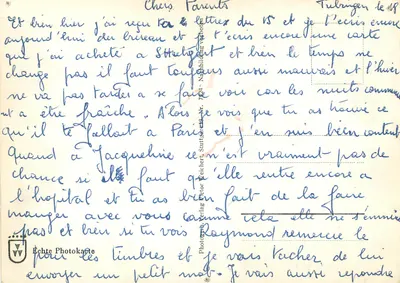 Chers Parents Tubingen le 18
Et bien hier j'ai reçu ta lettre du 15 et je t'ecris encore
aujourd'hui du bureau et je t'ecris encore une carte
que j'ai acheté a Stuttgart et bien le temps ne
change pas il fait toujours aussi mauvais et l'hiver
ne va pas tarder a se faire voir car les nuits commence
nt a être fraîche. Alors je vois que tu as trouvé ce
qu'il te fallait a Paris et j'en suis bien content
Quand a Jacqueline ce n'est vraiment pas de
chance si il faut qu'elle rentre encore a
l'hopital et tu as bien fait de la faire
manger avec vous comme cela elle ne s'ennuie
pas et bien si tu vois Raymond remercie le
pour les timbres et je vais tacher de lui
envoyer un petit mot. Je vais aussi repondre
Echte Photokarte